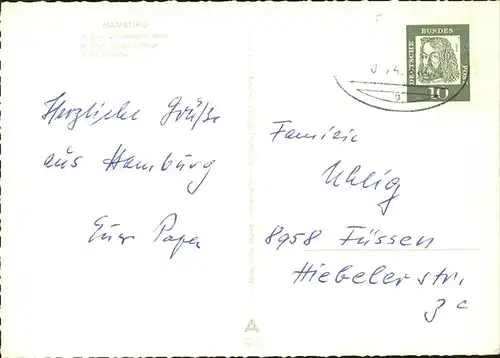 HAMBURG
Herzliche Grüße
aus Hamburg
Eure Papa
DEUTSCHE
BUNDES
POST
10
Familie
Uhlig
8958 Füssen
Hiebelerstr.
3c